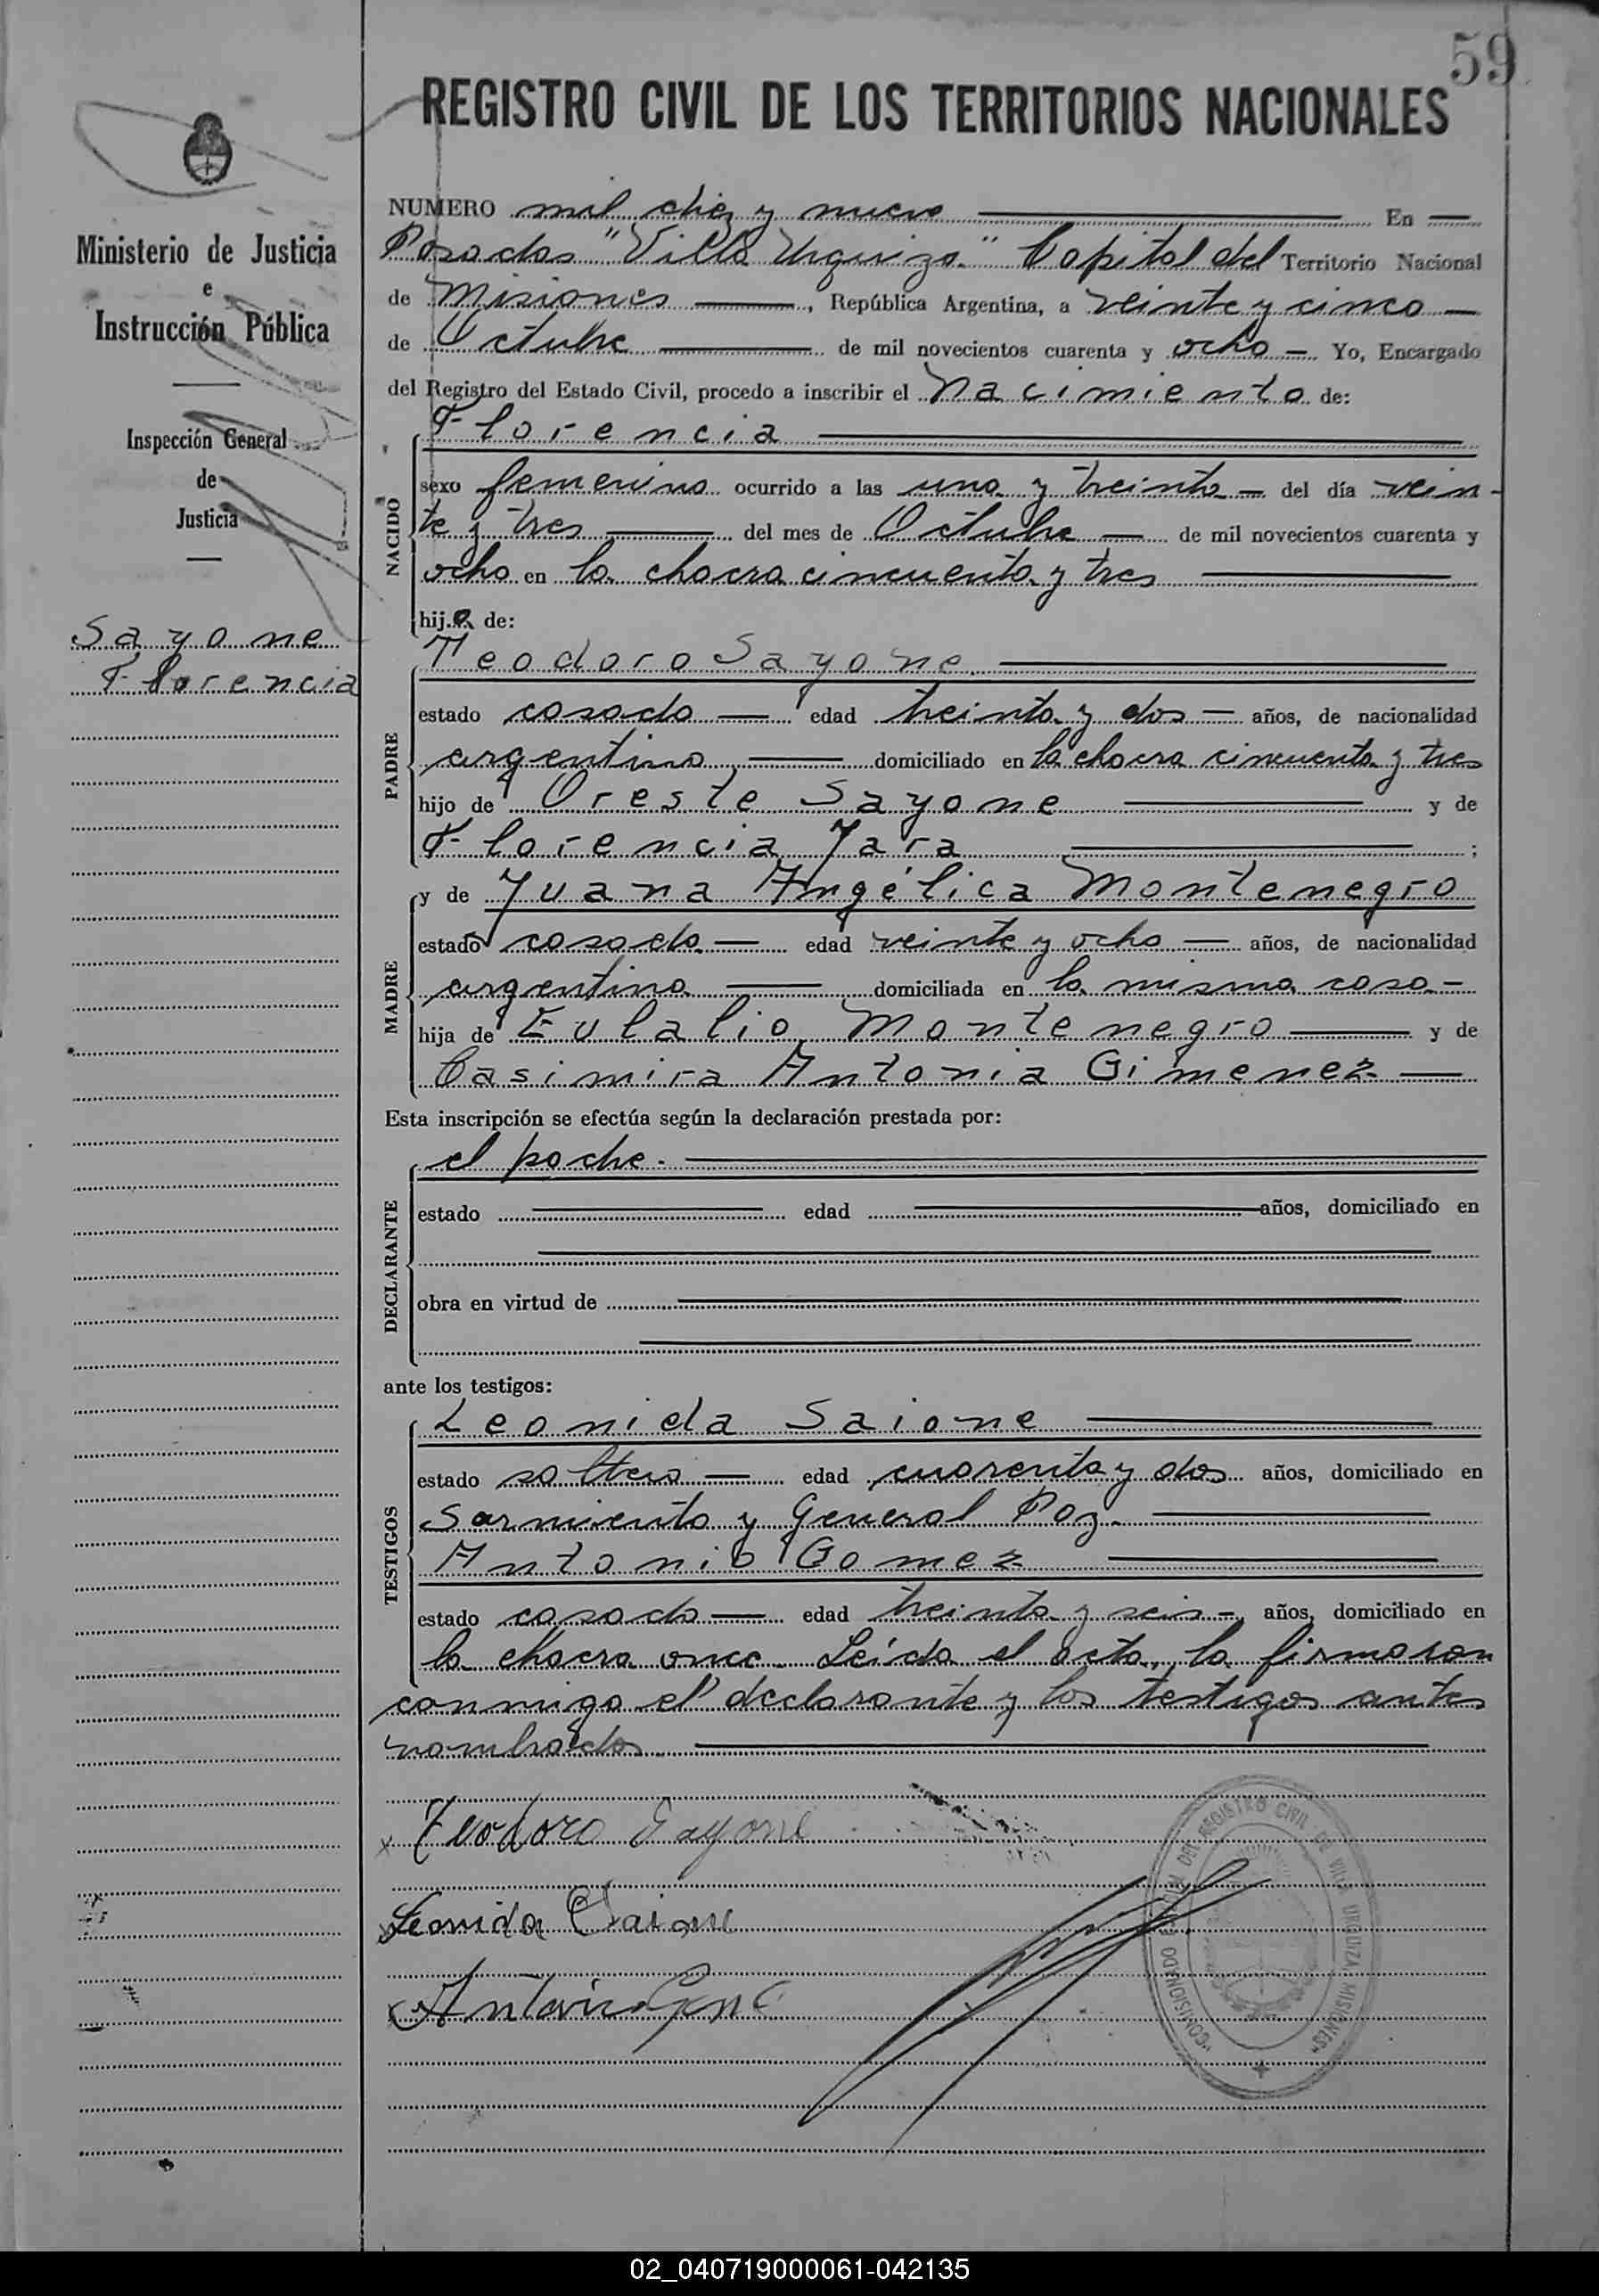 59
REGISTRO CIVIL DE LOS TERRITORIOS NACIONALES
Ministerio de Justicia
e
Instrucción Pública
Inspección General
de
Justicia
Sayone
Florencia
NUMERO mil diez y nueve En
Posadas "Villa Urquiza" Capital del Territorio Nacional
de Misiones, República Argentina, a veinte y cinco
de Octubre de mil novecientos cuarenta y ocho Yo, Encargado
del Registro del Estado Civil, procedo a inscribir el Nacimiento de:
NACIDO
Florencia
sexo femenino ocurrido a las una y treinta del día vein-
te y tres del mes de Octubre de mil novecientos cuarenta y
ocho en la chacra cincuenta y tres
hija de:
PADRE
Teodoro Sayone
estado casado edad treinta y dos años, de nacionalidad
argentino domiciliado en la chacra cincuenta y tres
hijo de Oreste Sayone y de
Florencia Jara ;
MADRE
y de Juana Angélica Montenegro
estado casada edad veinte y ocho años, de nacionalidad
argentina domiciliada en la misma casa
hija de Eulalio Montenegro y de
Casimira Antonia Gimenez
Esta inscripción se efectúa según la declaración prestada por:
DECLARANTE
el padre.
estado edad años, domiciliado en
obra en virtud de
ante los testigos:
TESTIGOS
Leonida Saione
estado soltero edad cuarenta y dos años, domiciliado en
Sarmiento y General Paz.
Antonio Gomez
estado casado edad treinta y seis, años, domiciliado en
la chacra once. Leída el acta, la firmaron
conmigo el declarante y los testigos antes
nombrados.
Teodoro Sayone
Leonida Saione
Antonio
COMISIONADO DEL REGISTRO CIVIL DE VILLA URQUIZA MISIONES
02_040719000061-042135